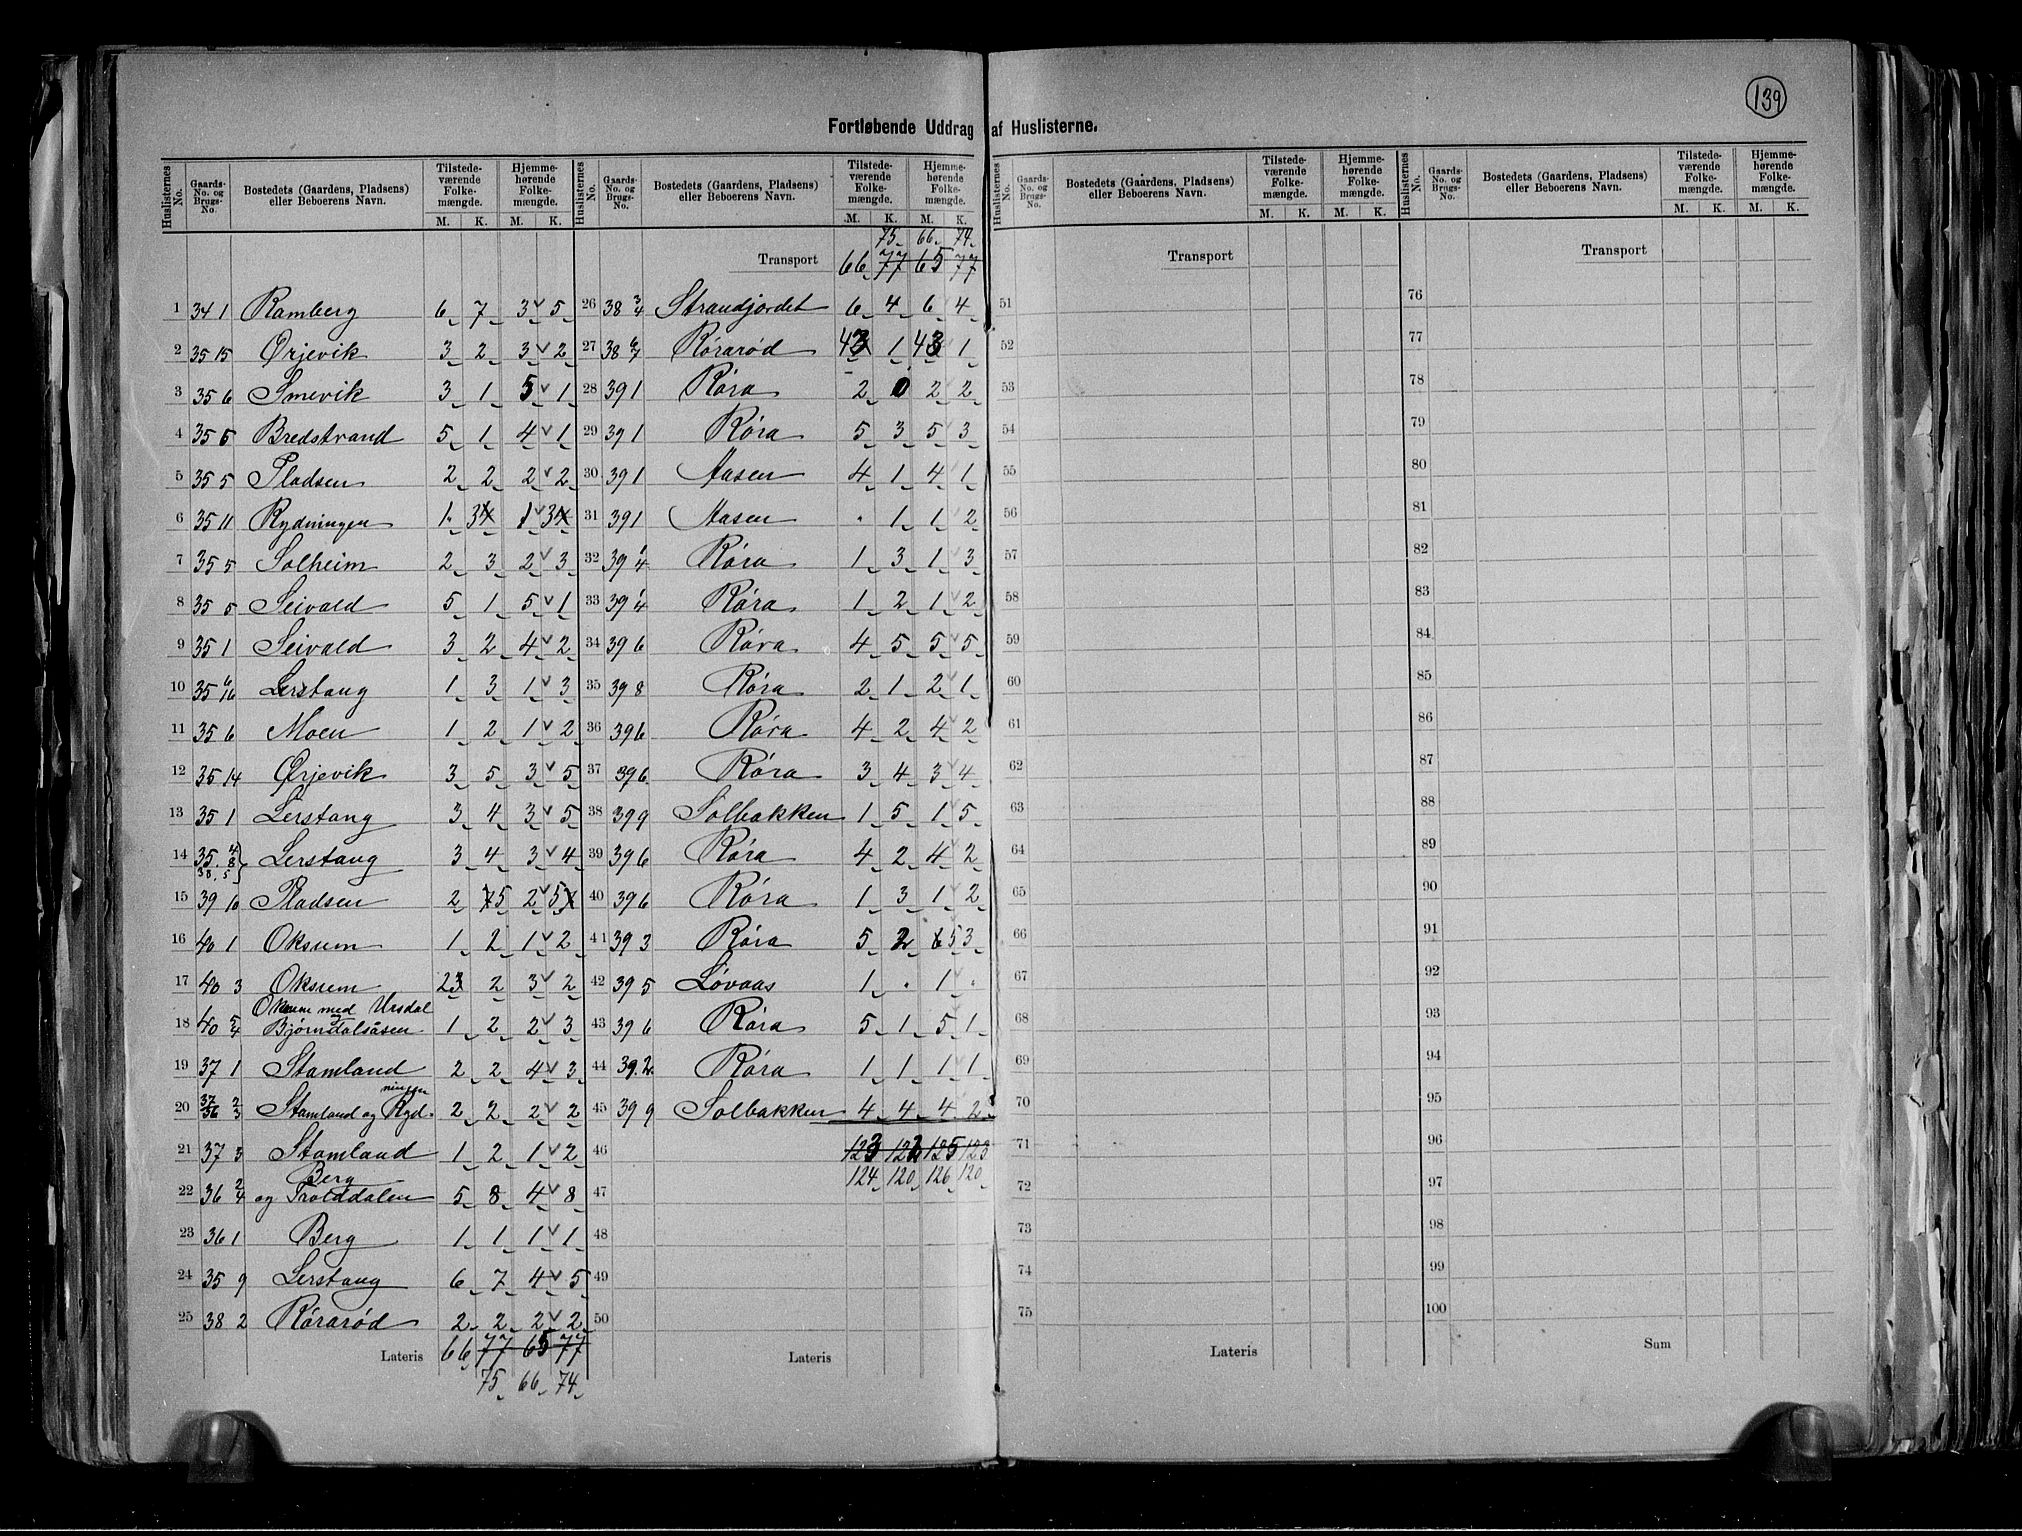 139
Fortløbende Uddrag af Huslisterne.
Huslisternes No. Gaards- No. og Brugs- No. Bostedets (Gaardens, Pladsens) eller Beboerens Navn. Tilstedeværende Folkemængde. M. K. Hjemmehørende Folkemængde. M. K.
1 34 1 Ramberg 6 7 3 5
2 35 15 Ørjevik 3 2 3 2
3 35 6 Smevik 3 1 5 1
4 35 6 Bredstrand 5 1 4 1
5 35 5 Pladsen 2 2 2 2
6 35 11 Rydningen 1 3 1 3
7 35 5 Solheim 2 3 2 3
8 35 5 Seivald 5 1 5 1
9 35 1 Seivald 3 2 4 2
10 35 6/16 Lerstang 1 3 1 3
11 35 6 Moen 1 2 1 2
12 35 14 Ørjevik 3 5 3 5
13 35 1 Lerstang 3 4 3 5
14 35 4 8 38 5 Lerstang 3 4 3 4
15 39 10 Pladsen 2 5 2 5
16 40 1 Oksum 1 2 1 2
17 40 3 Oksum 23 2 3 2
18 40 5/4 Oksum med Ursdal og Bjørndalsåsen 1 2 2 3
19 37 1 Stamland 2 2 4 3
20 37 2 36 3 Stamland og Rydningen 2 2 2 2
21 37 3 Stamland 1 2 1 2
22 36 2/4 Berg og Trolddalen 5 8 4 8
23 36 1 Berg 1 1 1 1
24 35 9 Lerstang 6 7 4 5
25 38 2 Rórarød 2 2 2 2
Lateris 66 77 65 77
75 66 74
Huslisternes No. Gaards- No. og Brugs- No. Bostedets (Gaardens, Pladsens) eller Beboerens Navn. Tilstedeværende Folkemængde. M. K. Hjemmehørende Folkemængde. M. K.
75 66 74
Transport 66 77 65 77
26 38 3/4 Strandjordet 6 4 6 4
27 38 6/7 Rórarød 43 1 43 1
28 39 1 Róra 2 0 2 2
29 39 1 Róra 5 3 5 3
30 39 1 Aasen 4 1 4 1
31 39 1 Aasen . 1 1 2
32 39 1/4 Róra 1 3 1 3
33 39 1/4 Róra 1 2 1 2
34 39 6 Róra 4 5 5 5
35 39 8 Róra 2 1 2 1
36 39 6 Róra 4 2 4 2
37 39 6 Róra 3 4 3 4
38 39 9 Solbakken 1 5 1 5
39 39 6 Róra 4 2 4 2
40 39 6 Róra 1 3 1 2
41 39 3 Róra 5 2 5 3
42 39 5 Løvaas 1 . 1 .
43 39 6 Róra 5 1 5 1
44 39 2 Róra 1 1 1 1
45 39 9 Solbakken 4 4 4 2
46 123 122 125 123
47 124 120 126 120
48
49
50
Lateris
Huslisternes No. Gaards- No. og Brugs- No. Bostedets (Gaardens, Pladsens) eller Beboerens Navn. Tilstedeværende Folkemængde. M. K. Hjemmehørende Folkemængde. M. K.
Transport
51
52
53
54
55
56
57
58
59
60
61
62
63
64
65
66
67
68
69
70
71
72
73
74
75
Lateris
Huslisternes No. Gaards- No. og Brugs- No. Bostedets (Gaardens, Pladsens) eller Beboerens Navn. Tilstedeværende Folkemængde. M. K. Hjemmehørende Folkemængde. M. K.
Transport
76
77
78
79
80
81
82
83
84
85
86
87
88
89
90
91
92
93
94
95
96
97
98
99
100
Sum